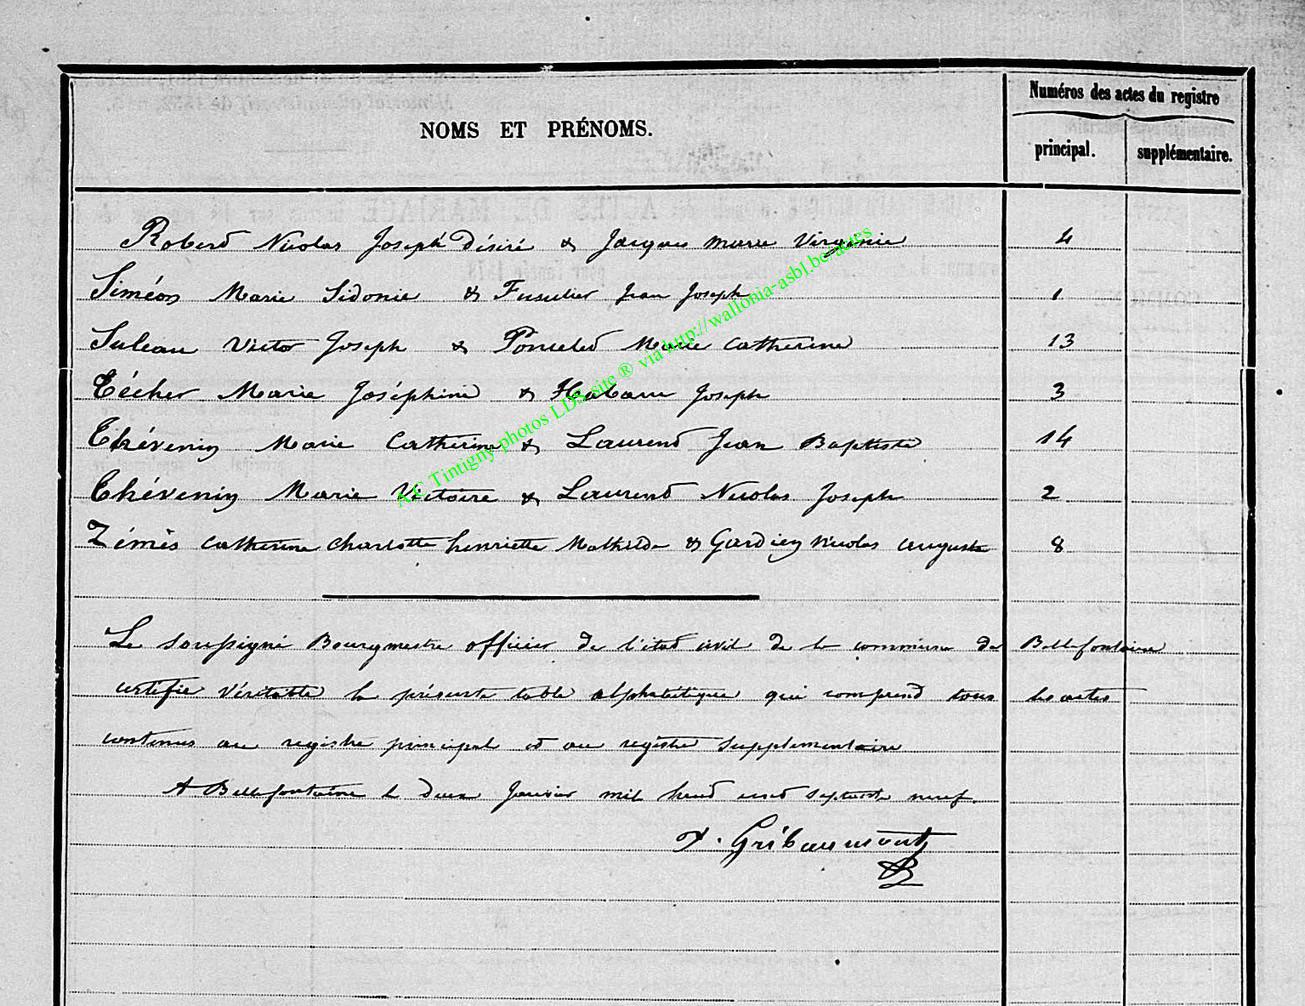 Numéros des actes du registre
NOMS ET PRÉNOMS.
principal. supplémentaire.
Robert Nicolas Joseph Désiré & Jacques Marie Virginie 4
Siméon Marie Sidonie & Fusulier Jean Joseph 1
Suleau Victor Joseph & Poncelet Marie Catherine 13
Técher Marie Joséphine & Habaru Joseph 3
Thévenin Marie Catherine & Laurent Jean Baptiste 14
Thévenin Marie Victoire & Laurent Nicolas Joseph 2
Zémès Catherine Charlotte henriette Mathilde & Gardien Nicolas Auguste 8
Le soussigné Bourgmestre officier de l'état civil de la commune de Bellefontaine
certifie véritable la présente table alphabétique qui comprend tous les actes
contenus au registre principal et au registre supplémentaire
A Bellefontaine le deux Janvier mil huit cent septante neuf.
Gribaumont
AC Tintigny photos LDS site ® via http://wallonia-asbl.be/actes